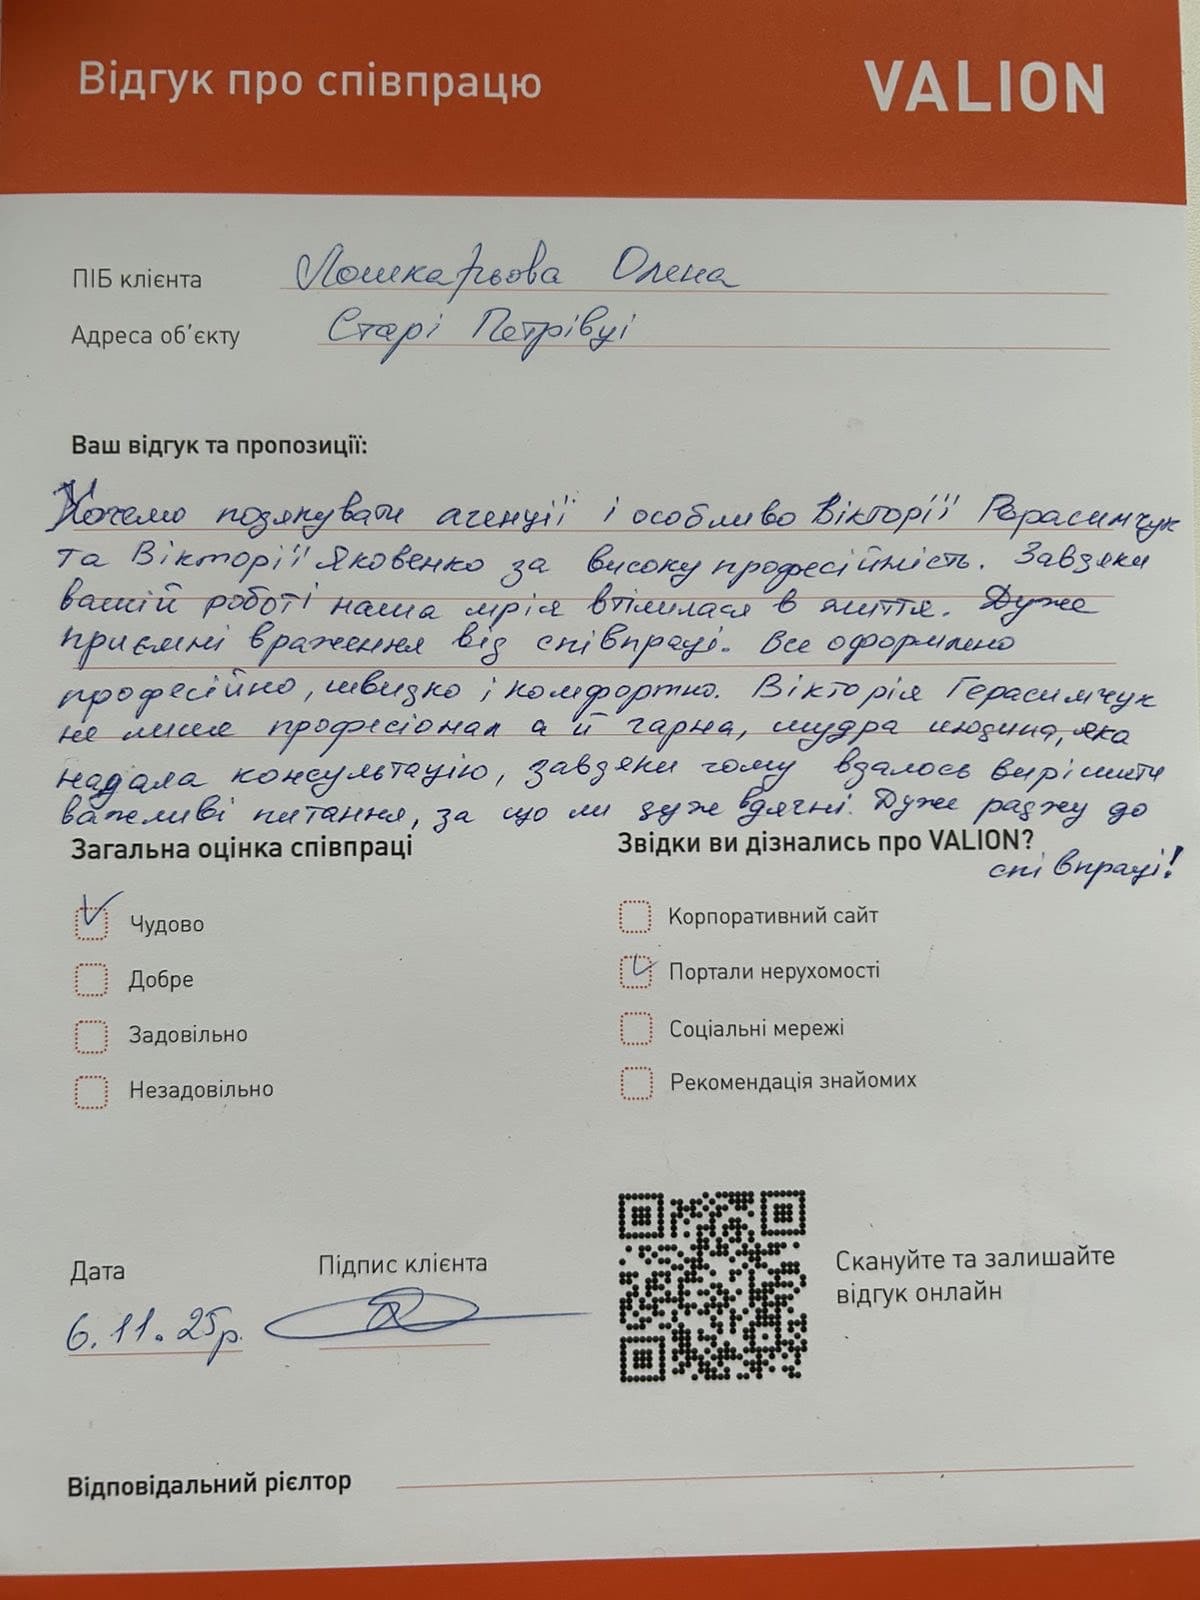 Відгук про співпрацю
VALION
ПІБ клієнта Лошкарьова Олена
Адреса об'єкту Старі Петрівці
Ваш відгук та пропозиції:
Хочемо подякувати агенції і особливо Вікторії Герасимчук
та Вікторії Яковенко за високу професійність. Завдяки
вашій роботі наша мрія втілилася в життя. Дуже
приємні враження від співпраці. Все оформлено
професійно, швидко і комфортно. Вікторія Герасимчук
не лише професіонал а й гарна, мудра людина, яка
надала консультацію, завдяки чому вдалось вирішити
важливі питання, за що ми дуже вдячні. Дуже раджу до
співпраці!
Загальна оцінка співпраці
Чудово
Добре
Задовільно
Незадовільно
Звідки ви дізнались про VALION?
Корпоративний сайт
Портали нерухомості
Соціальні мережі
Рекомендація знайомих
Дата
6.11.25р.
Підпис клієнта
Скануйте та залишайте
відгук онлайн
Відповідальний рієлтор